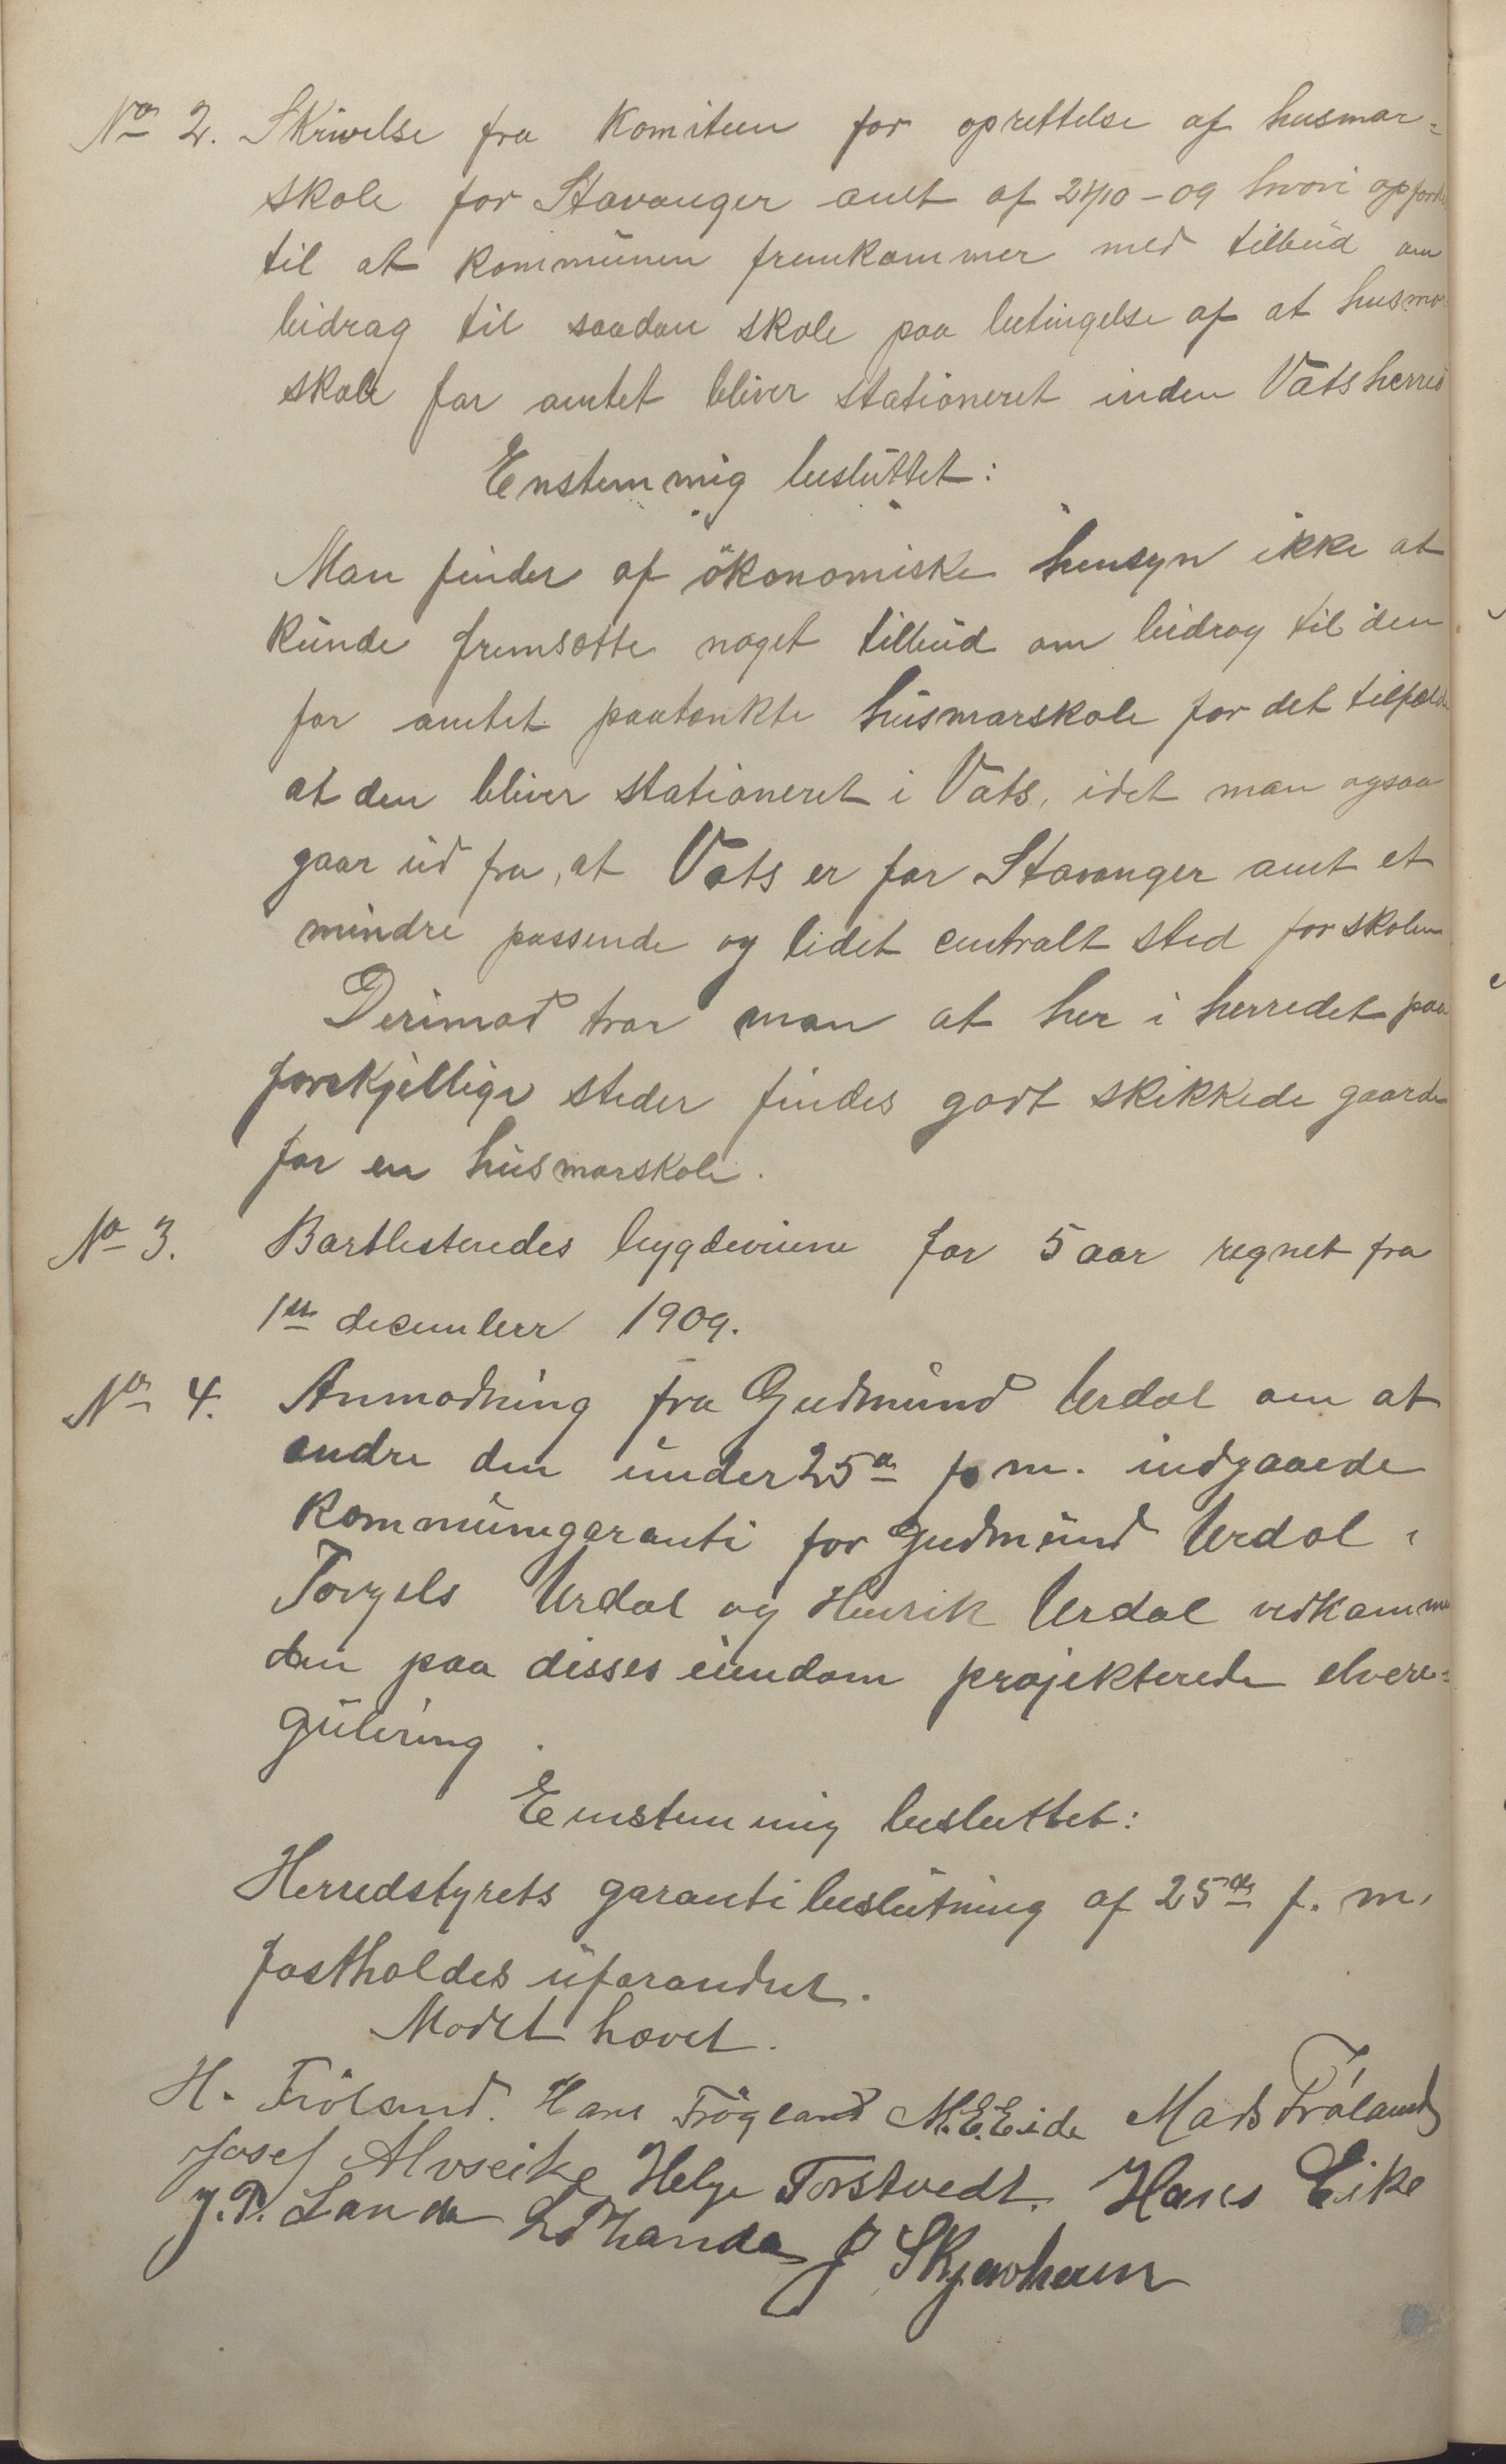 No 2. Skrivelse fra komiteen for oprettelse af husmor-
skole for Stavanger amt af 21/10-09 hvori opford
til at kommunen fremkommer med tilbud om
bidrag til saadan skole paa betingelse af at husmor
skole for amtet bliver stationeret inden Vats herred
Enstemmig besluttet:
Man finder af ökonomiske hensyn ikke at
kunde fremsætte noget tilbud om bidrag til den
for amtet paatænkte husmorskole for det tilfælde
at den bliver stationeret i Vats, idet man ogsaa
gaar ud fra, at Vats er for Stavanger amt et
mindre passende og lidet centralt sted for skolen
Derimod tror man at her i herredet paa
forskjellige steder findes godt skikkede gaarde
for en husmorskole.
No 3. Bortlisteredes bygdeviene for 5 aar regnet fra
1ste december 1909.
No 4. Anmodning fra Gudmund Urdal om at
endre den under 25de f. m. indgaaede
kommunegaranti for Gudmund Urdal,
Torgels Urdal og Henrik Urdal vedkommen
den paa disses eiendom projekterede elvere-
gulering.
Enstemmig besluttet:
Herredstyrets garantibeslutning af 25de f. m.
fastholdes uforandret.
Mødet hævet.
H. Fröland. Hans Frögland M.E.Eide Mads Fröland
Josef Alvseike Helge Torstvedt. Hans Eike
J.P. Landa L Landa J Skjeveheim